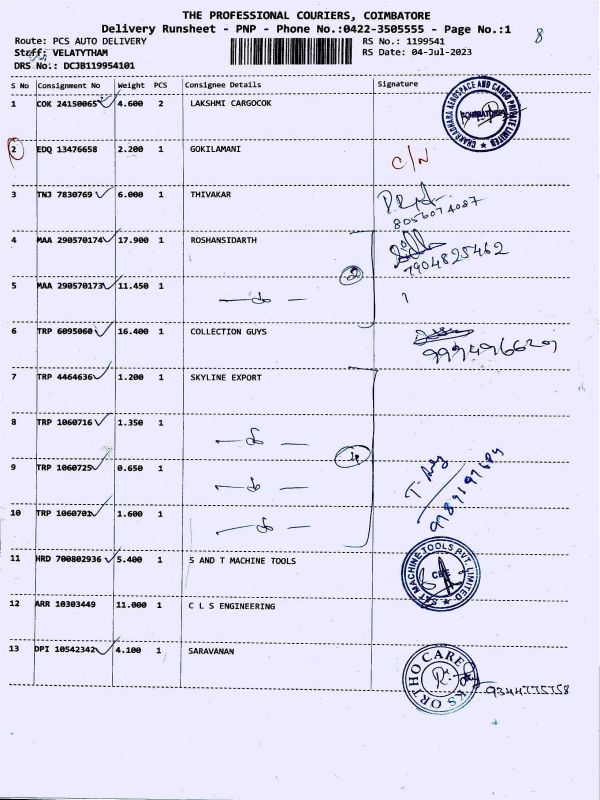 THE PROFESSIONAL COURIERS, COIMBATORE
Delivery Runsheet - PNP - Phone No.:0422-3505555 - Page No.:1
8
Route: PCS AUTO DELIVERY RS No.: 1199541
Staff: VELATYTHAM RS Date: 04-Jul-2023
DRS No.: DCJB119954101
S No Consignment No Weight PCS Consignee Details Signature
1 COK 24150065 4.600 2 LAKSHMI CARGOCOK
CHAKRADHARA AEROSPACE AND CARGO PRIVATE LIMITED
2 EDQ 13476658 2.200 1 GOKILAMANI C/N
3 TNJ 7830769 6.000 1 THIVAKAR
8056074087
4 MAA 290570174 17.900 1 ROSHANSIDARTH
7904825462
5 MAA 290570173 11.450 1
2
6 TRP 6095060 16.400 1 COLLECTION GUYS
7 TRP 4464636 1.200 1 SKYLINE EXPORT
8 TRP 1060716 1.350 1
9 TRP 1060725 0.650 1
10 TRP 1060701 1.600 1
11 HRD 700802936 5.400 1 S AND T MACHINE TOOLS
S&T MACHINE TOOLS PVT. LIMITED
CBE
12 ARR 10303449 11.000 1 C L S ENGINEERING
13 DPI 10542342 4.100 1 SARAVANAN
ORTHO CARE